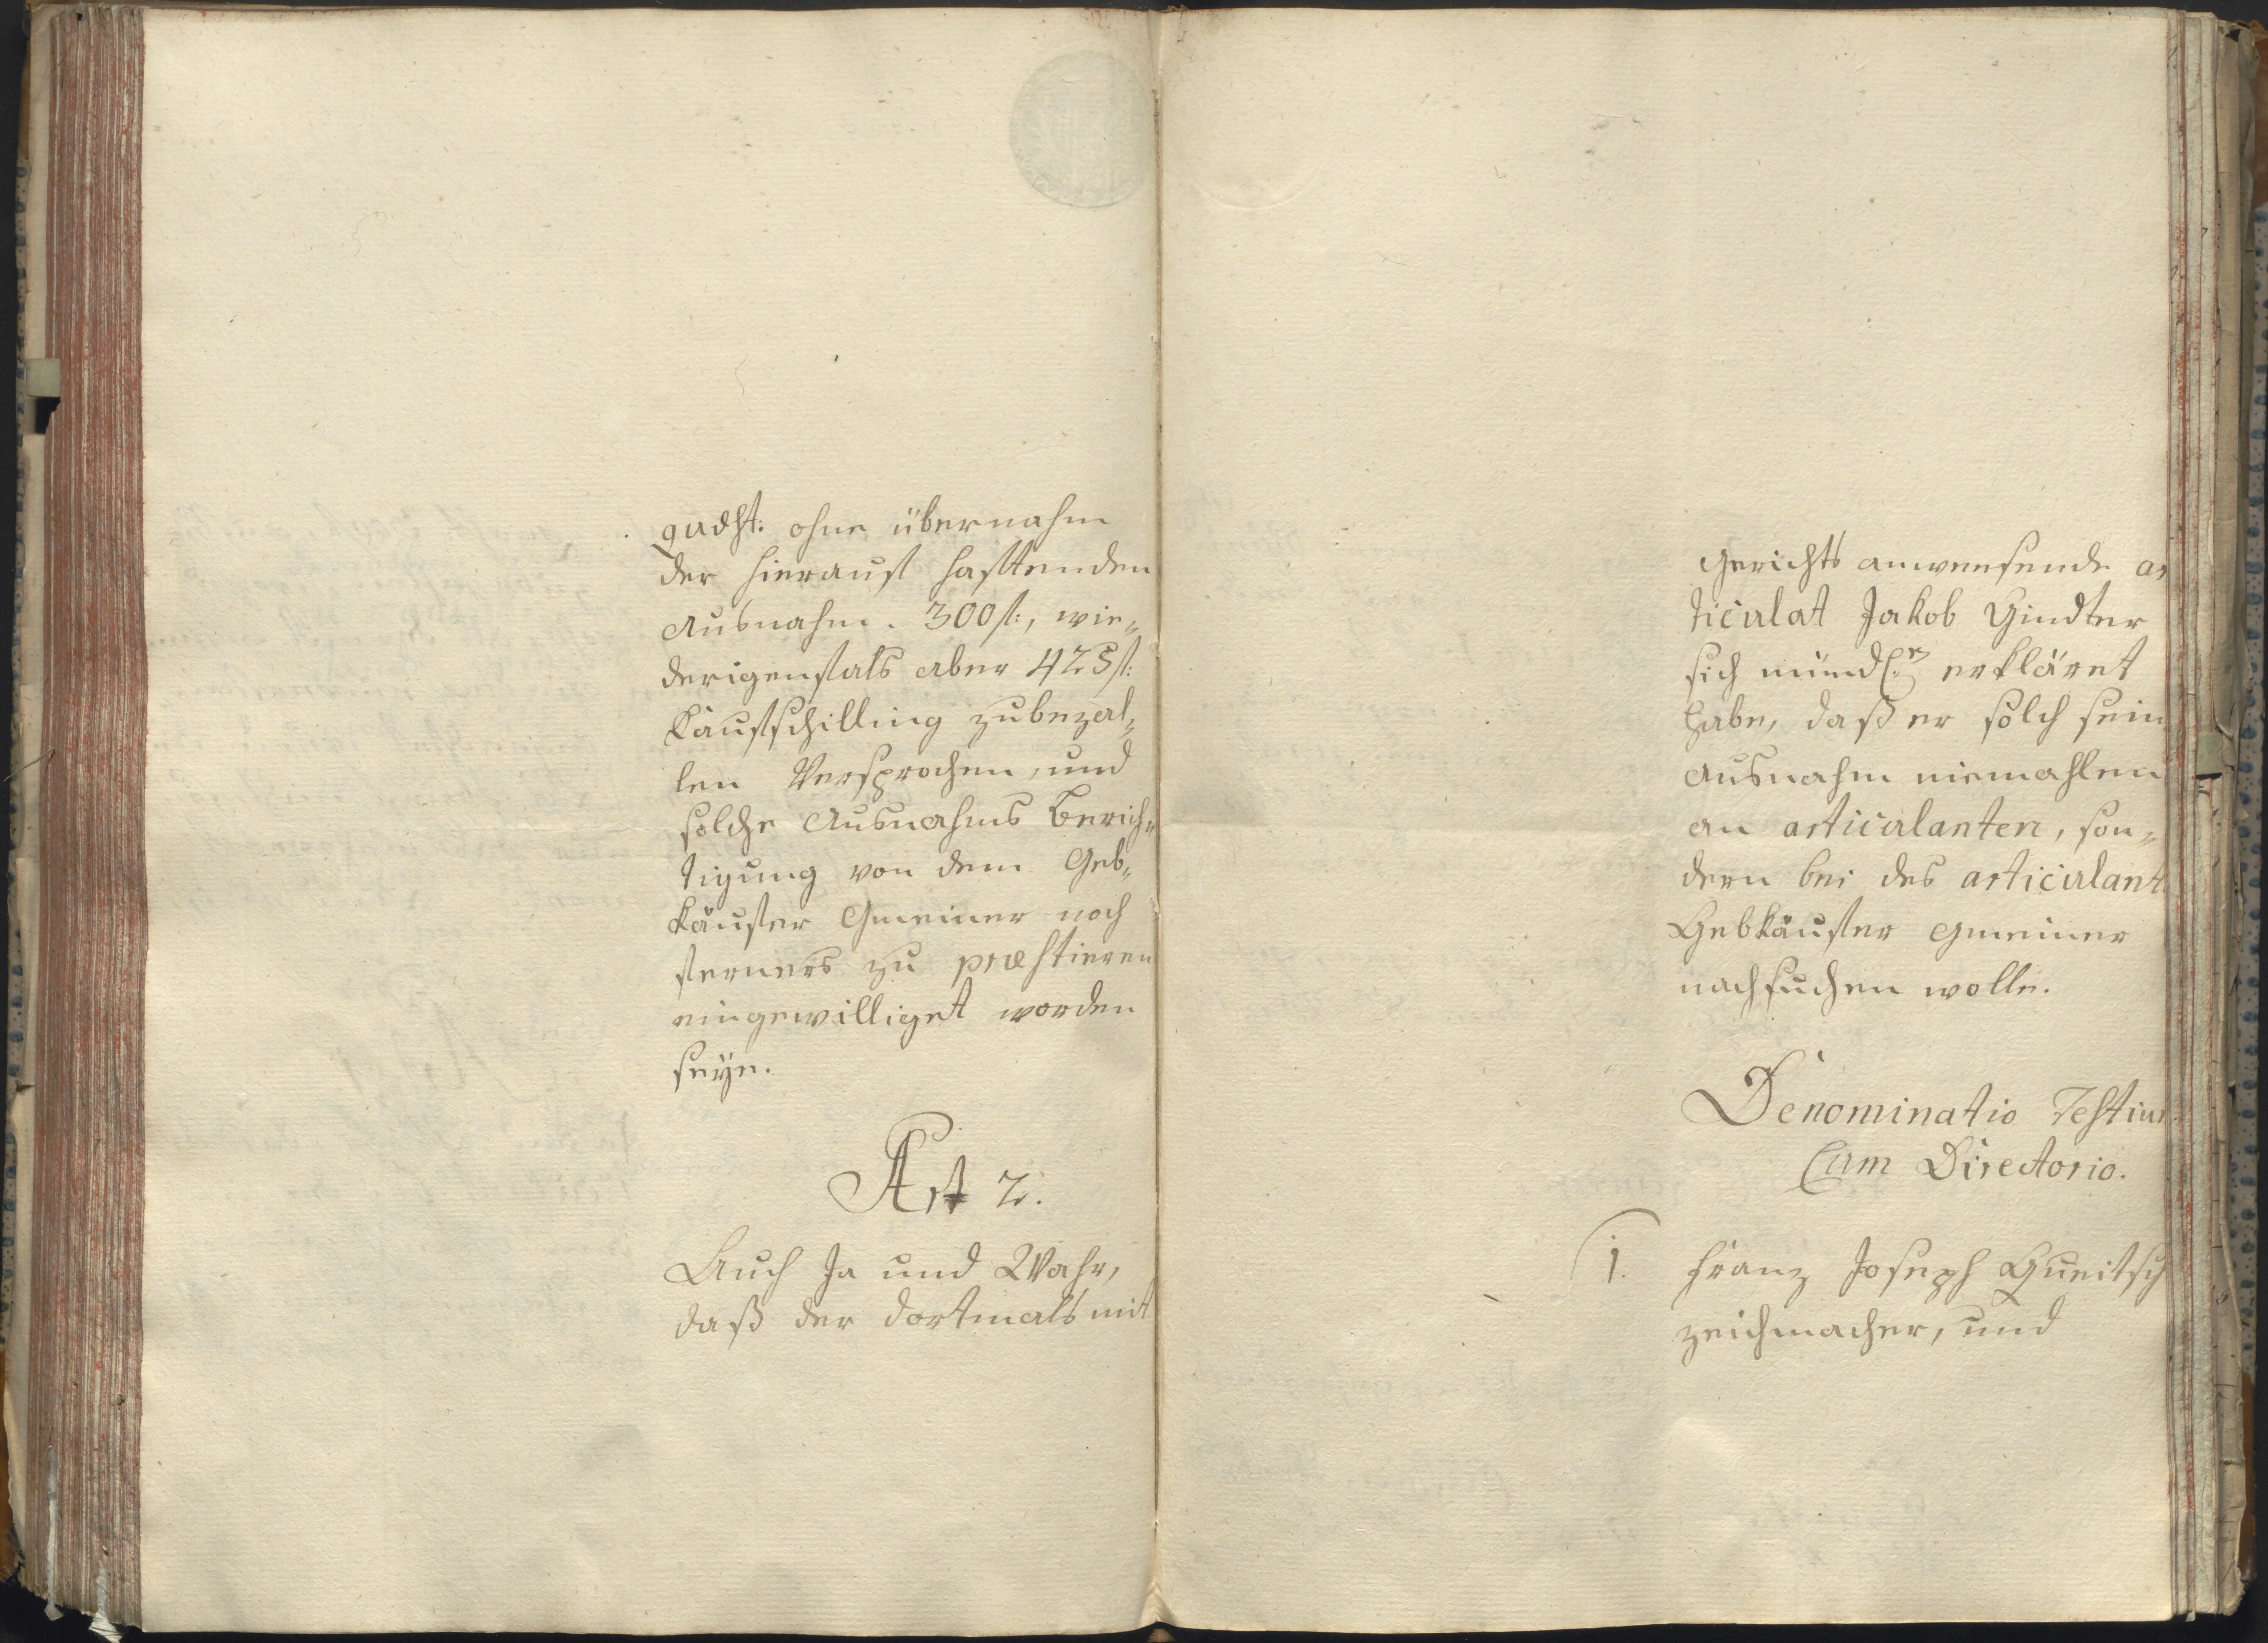 quæst: ohne übernahm
der hierauf hafftenden
Ausnahm. 300 f:, wie„
derigenfals aber 425 f:
Kaufschilling zubezal„
len Versprochen, und
solche Ausnahms berich„
tigung von dem Geb„
käufer Gmeiner noch
ferners zu præstieren
eingewilliget worden
seÿe.
Art 2.
Auch Ja und Wahr,
daß der dortmals mit
Gerichts anweesende ar
ticulat Jakob Gindter
sich mündl: erkläret
habe, daß er solch sein
Ausnahm niemahlen
an articulanten, son„
dern bei des articulant
Gebkäufer Gmeiner
nachsuchen wolle.
Denominatio Testium
Cum Directorio.
1. Franz Joseph
zeichmacher, und